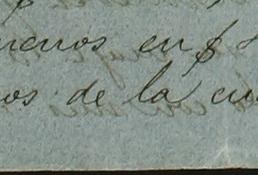 menos en $
os de la cu